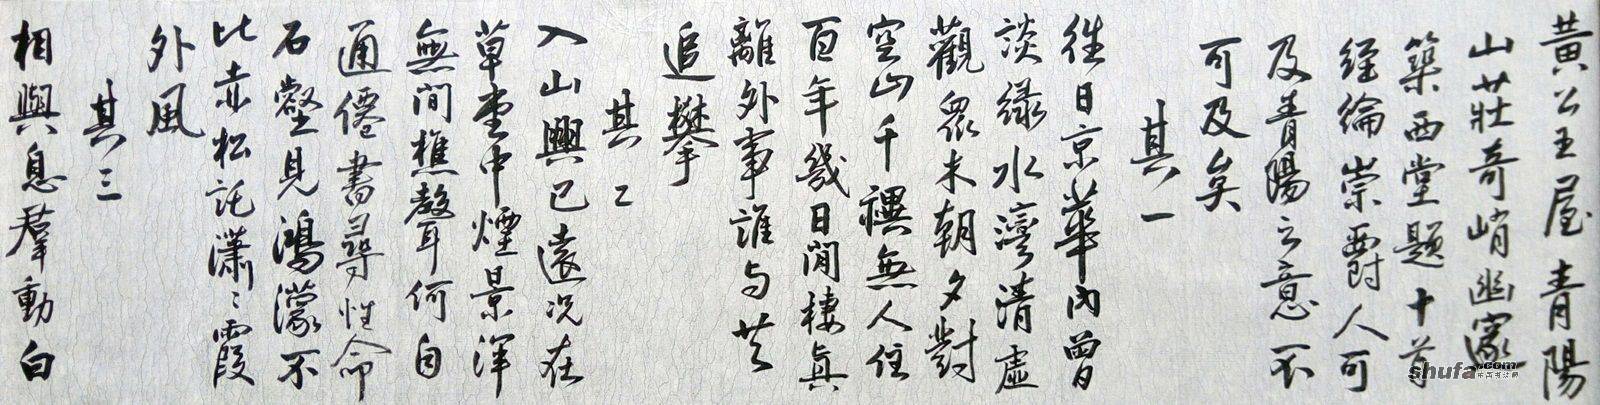 黃公王屋青陽
山莊奇峭幽邃
築西堂題十首
經綸崇爵人可
及青陽之意不
可及矣
其一
往日京華內曾
談綠水灣清虛
觀眾未朝夕對
空山千禩無人住
百年幾日閒棲真
離外事誰与共
追攀
其二
入山興已遠況在
草堂中煙景渾
無間樵聲耳何自
通僊書尋性命
石壑見鴻濛不
比赤松託瀟〻霞
外風
其三
相與息羣動白
shufa.com